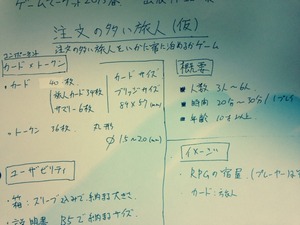 注文の多い旅人(仮)
注文の多い旅人をいかに宿に泊めるかゲーム
コンポーネント
カード×トークン
・カード 40枚
旅人カード34枚
サマリー6枚
カードサイズ
ブリッジサイズ
89×57(mm)
・トークン 36枚 丸形
∅ 1.5~20(mm)
概要
人数 3人~6人
時間 20分~30分/1プレイ
年齢 10才以上
ユーザビリティ
・箱:スリーブ込みで納まる大きさ
・説明書 B5で納まるサイズ
イメージ
・RPGの宿屋(プレーヤーは
カード: